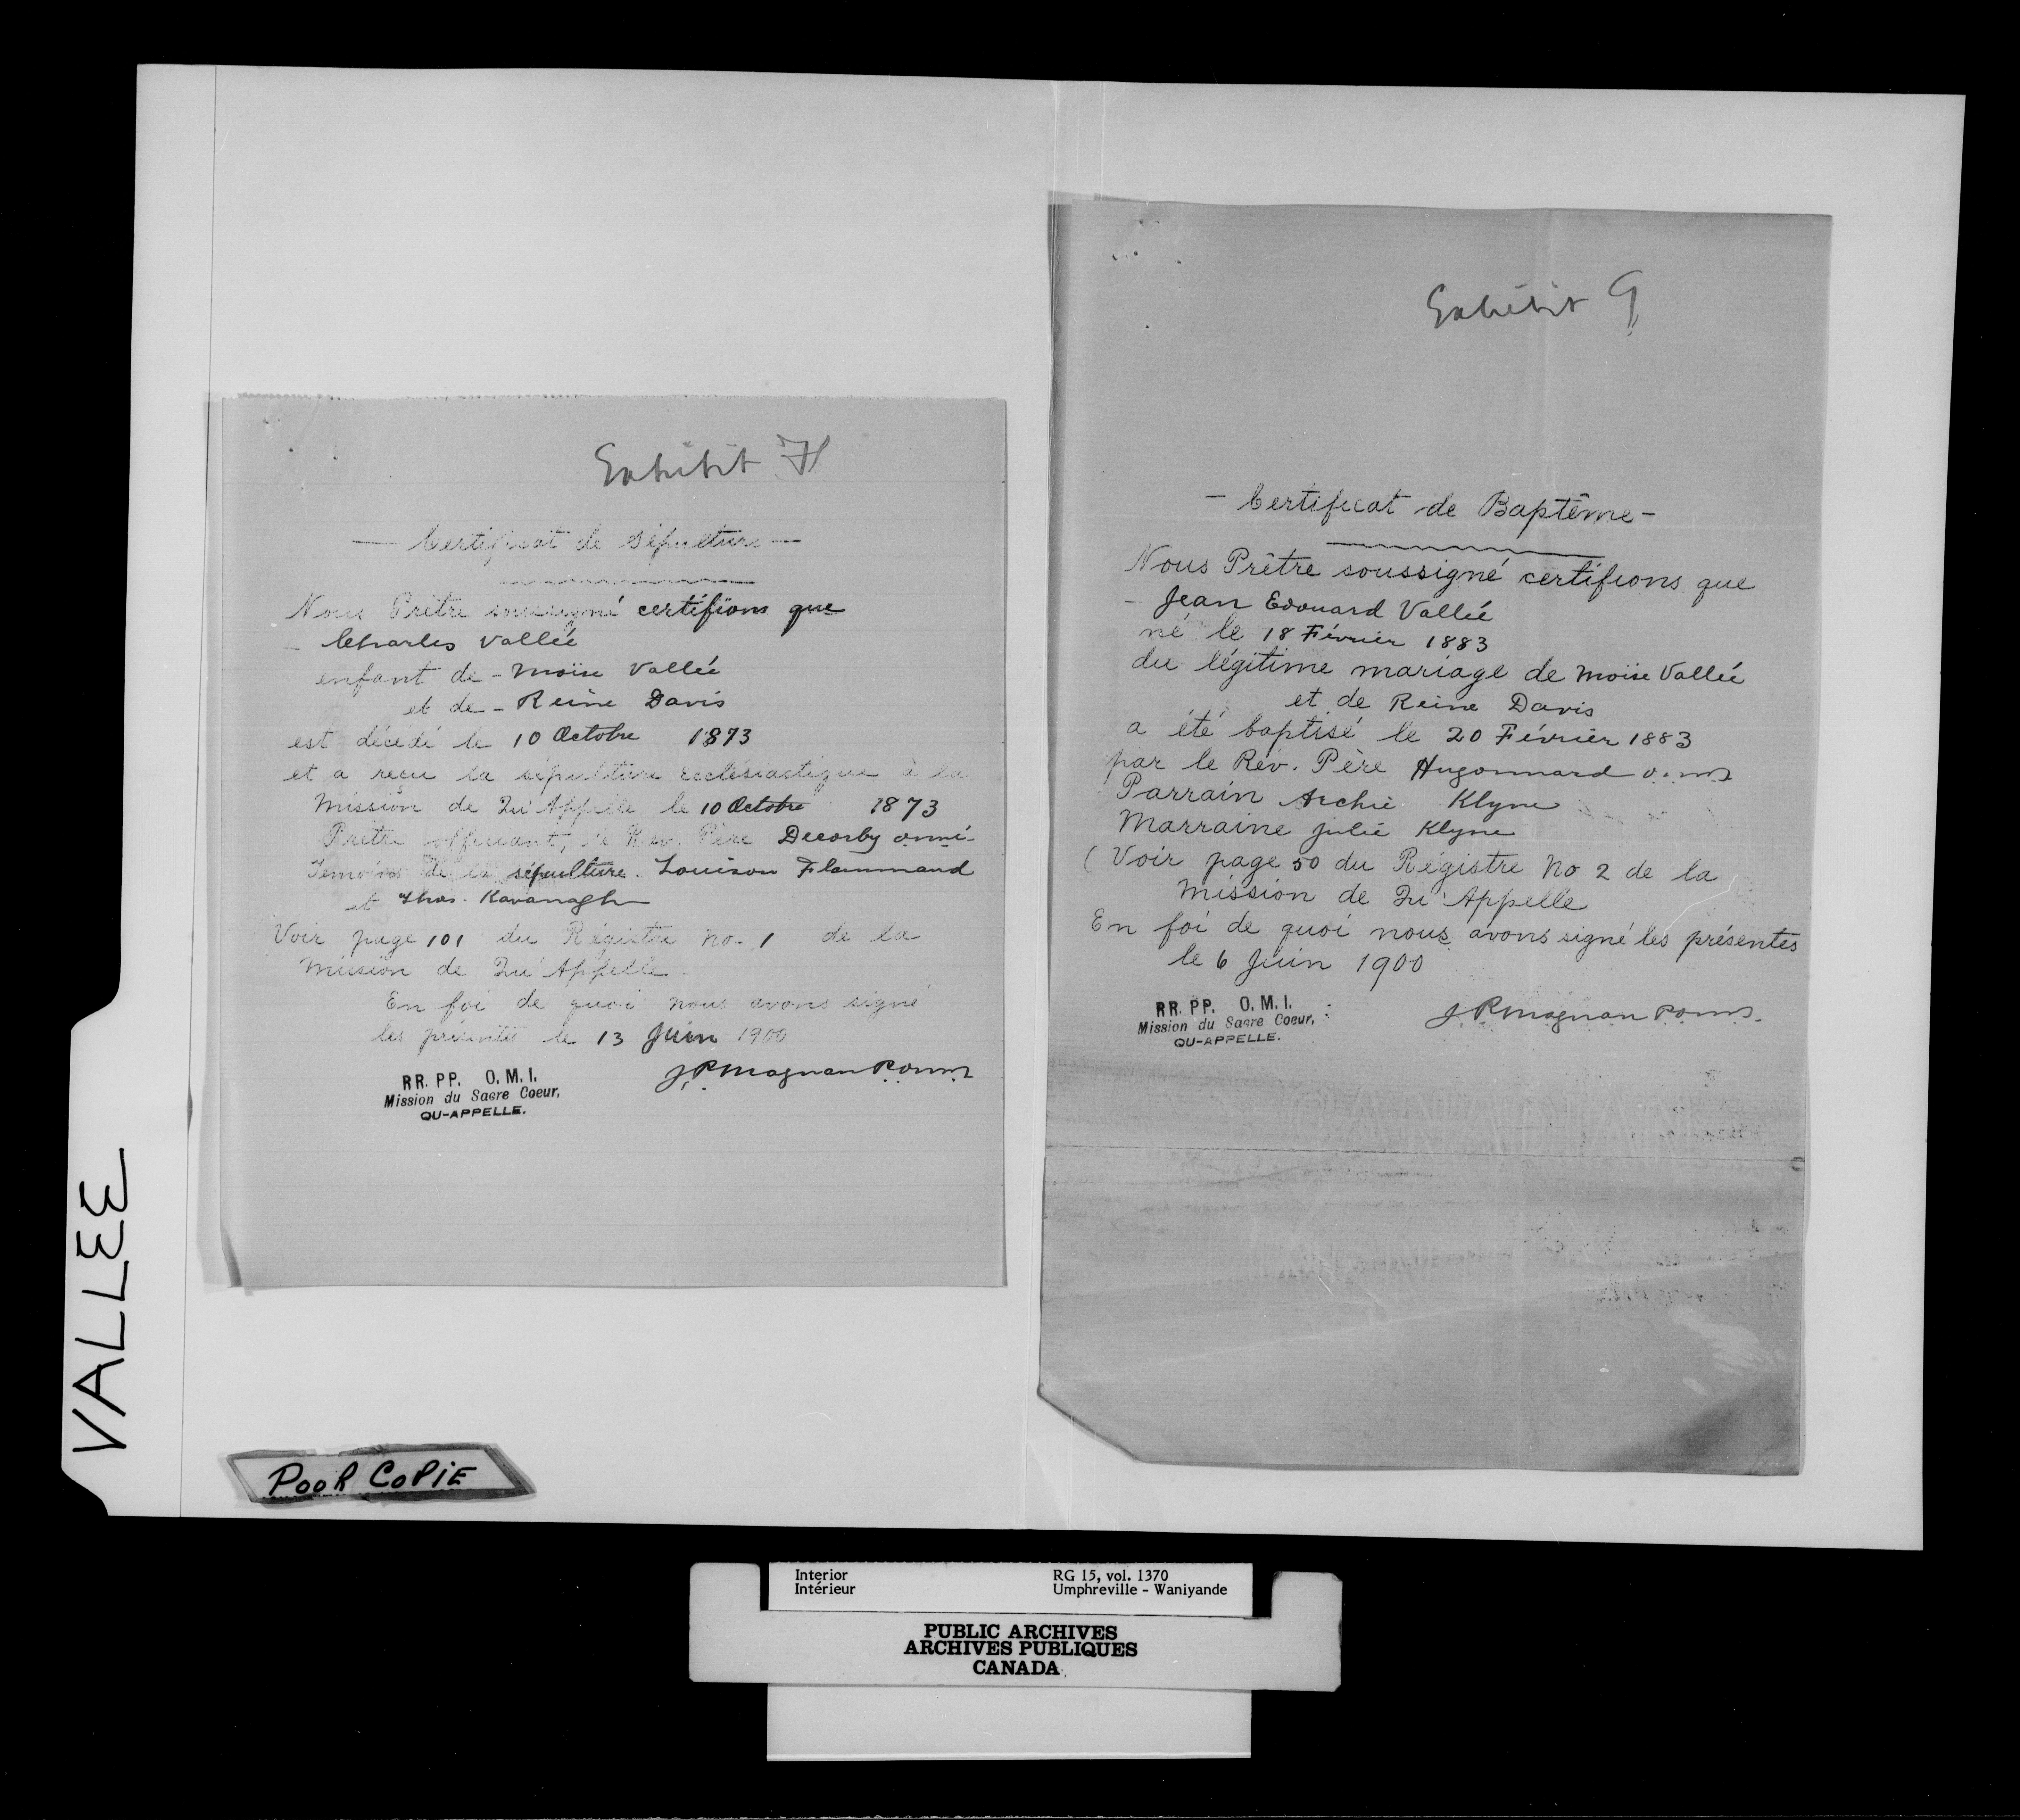 Exhibit H
— Certificat de Sépulture —
Nous Prêtre soussigné certifions que
– Charles Vallée
enfant de – Moïse Vallée
et de – Reine Davis
est décédé le 10 Octobre 1873
et a reçu la sépulture Ecclésiastique à la
Mission de Qu'Appelle le 10 Octobre 1873
Prêtre officiant, le Rev. Père Decorby o.m.i.
Témoins de la sépulture. Louison Flammand
et Thos. Kavanagh
Voir page 101 du Régistre No. 1 de la
Mission de Qu'Appelle.
En foi de quoi nous avons signé
les présentes le 13 Juin 1900
J. P. Magnan P. o.m.i.
RR. PP. O. M. I.
Mission du Sacre Coeur,
QU-APPELLE.
Exhibit G
– Certificat de Baptême –
Nous Prêtre soussigné certifions que
– Jean Edouard Vallée
né le 18 Février 1883
du légitime mariage de Moïse Vallée
et de Reine Davis
a été baptisé le 20 Février 1883
par le Rév. Père Hugonnard o.m.i.
Parrain Archie Klyne
Marraine Julie Klyne
( Voir page 50 du Régistre No 2 de la
Mission de Qu'Appelle
En foi de quoi nous avons signé les présentes
le 6 Juin 1900
RR. PP. O. M. I.
Mission du Sacre Coeur,
QU-APPELLE.
J. P. Magnan P. o.m.i.
VALLEE
POOR COPiE
Interior RG 15, vol. 1370
Intérieur Umphreville - Waniyande
PUBLIC ARCHIVES
ARCHIVES PUBLIQUES
CANADA